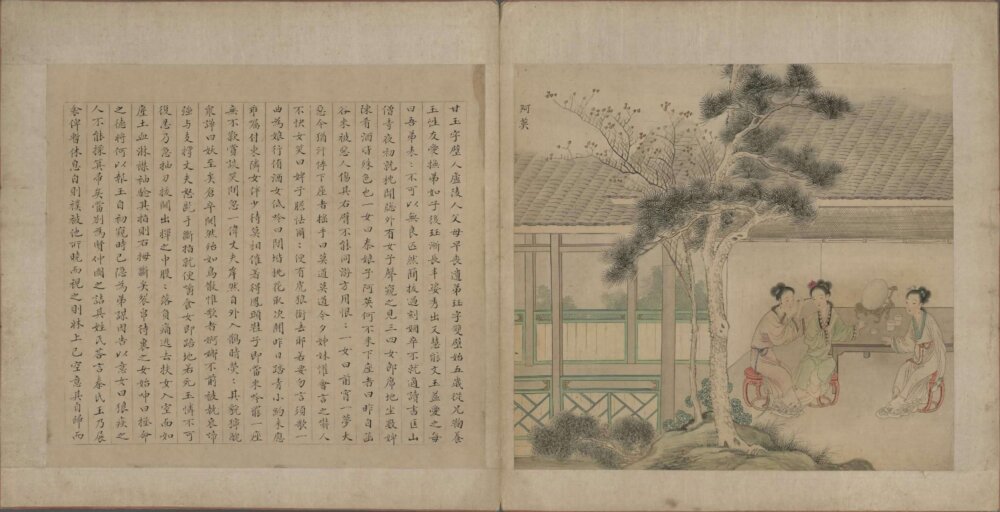 阿英
甘玉字璧人廬陵人父母早喪遺弟珏字雙璧始五歲從兄鞠養
玉性友愛撫弟如子後珏漸長丰姿秀出又慧能文玉益愛之每
曰吾弟表:不可以無良匹然簡拔過刻姻卒不就適讀書匡山
僧寺夜初就枕聞牕外有女子聲窺之見三四女郎席地坐數婢
陳肴酒皆殊色也一女曰秦娘子阿英何不來下座者曰昨自函
谷來被惡人傷其右臂不能同游方用恨:一女曰前宵一夢大
惡今猶汗悸下座者搖手曰莫道莫道今夕姊妹懽會言之嚇人
不快女笑曰婢子膽怯爾:便有虎狼銜去耶若要勿言須歌一
曲為娘行侑酒女低吟曰閒堦桃花取次開昨日踏青小約未應
乖囑付東隣女伴少待莫相催著得鳳頭鞋子即當來吟罷一座
無不歎賞談笑間忽一偉丈夫岸然自外入鶻睛熒:其貌獰醜
衆譁曰妖至矣倉卒鬨然殆如鳥散惟歌者婀娜不前被執哀啼
強與支撐丈夫怒齕手斷指就便嚼食女郎踣地若死玉憐不可
復忍乃急抽刀拔關出揮之中股:落負痛逃去扶女入室面如
塵土血淋襟袖驗其指則右拇斷矣裂帛待裹之女始呻曰拯命
之德將何以報玉自初窺時已隱為弟謀因告以意女曰狼疾之
人不能操箕帚矣當別為賢仲圖之詰其姓氏答言秦氏玉乃展
衾俾暫休息自則襆被他所曉而視之則牀上已空意其自歸而